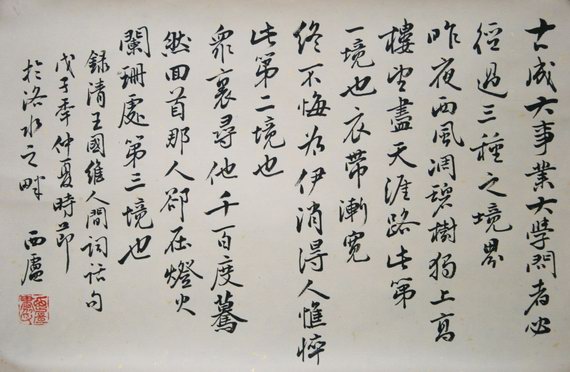 古成大事業大學問者必
經過三種之境界
昨夜西風凋碧樹獨上高
樓望盡天涯路此第
一境也衣帶漸寬
終不悔為伊消得人憔悴
此第二境也
眾裏尋他千百度驀
然回首那人卻在燈火
闌珊處第三境也
錄清王國維人間詞話句
戊子年仲夏時節
於洛水之畔 西廬